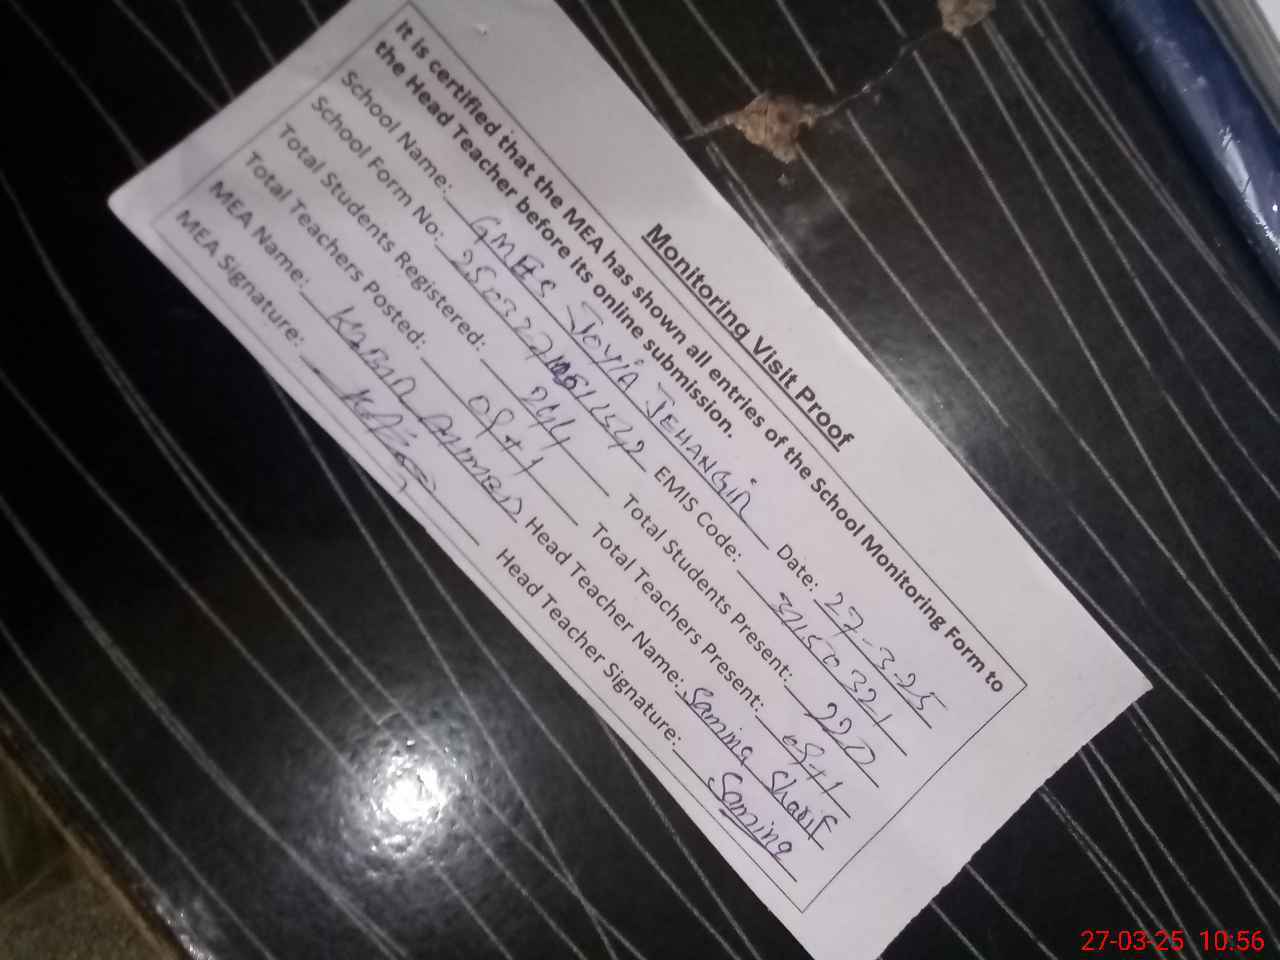 Monitoring Visit Proof
It is certified that the MEA has shown all entries of the School Monitoring Form to
the Head Teacher before its online submission.
School Name: GMES JOYIA JEHANGIR Date: 27-3-25
School Form No: EMIS Code: 37150321
Total Students Registered: 244 Total Students Present: 220
Total Teachers Posted: 08+1 Total Teachers Present: 08+1
MEA Name: AHMED Head Teacher Name: Samina Sharif
MEA Signature: Head Teacher Signature: Samina
27-03-25 10:56